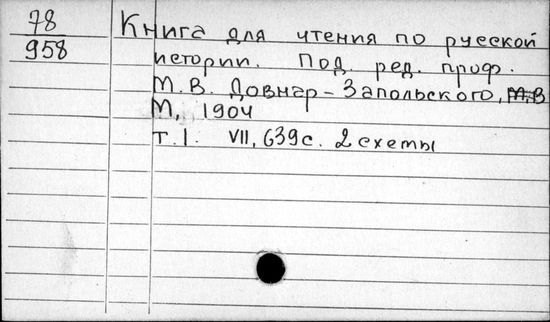 78
958
Книга для чтения по русской
истории. Под. ред. проф.
М.В. Довнар-Запольского,
М, 1904
т.1. VII, 639с. 2 схемы